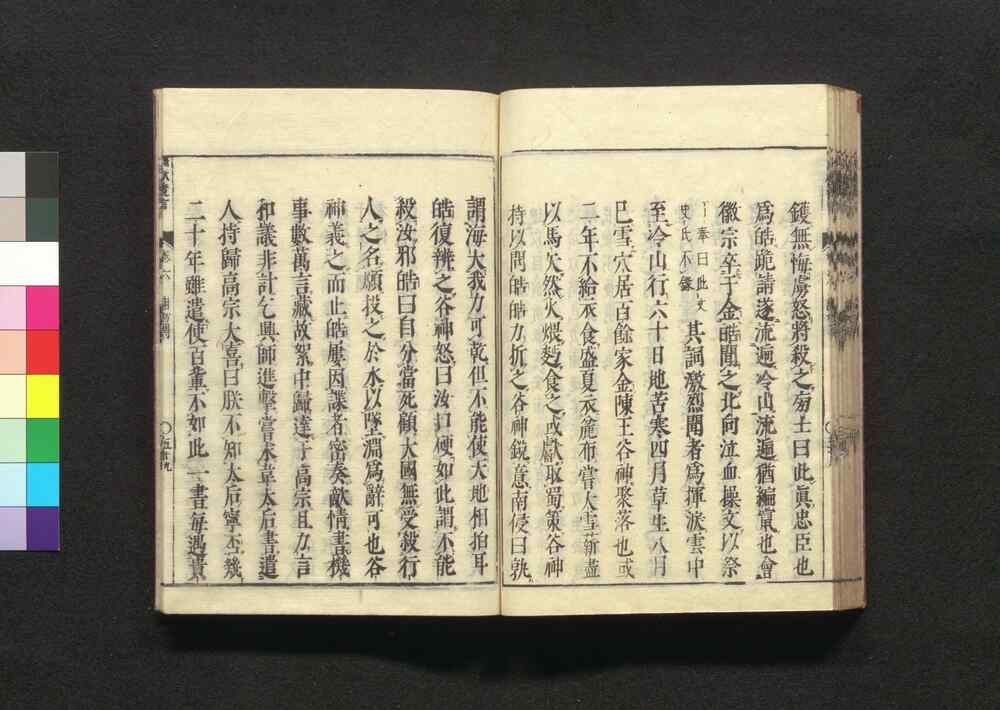 鑊無悔虜怒將殺之旁一士曰此眞忠臣也
爲皓跪請遂流遞冷山流遞猶編竄也會
徽宗卒于金皓聞之北向泣血操文以祭
其詞激烈聞者爲揮淚雲中
至冷山行六十日地苦寒四月草生八月
已雪穴居百餘家金陳王谷神聚落也或
二年不給衣食盛夏衣麁布嘗大雪薪盡
以馬矢然火煨麫食之或獻取蜀策谷神
持以問皓皓力折之谷神銳意南侵曰孰
謂海大我力可乾但不能使天地相拍耳
皓復辨之谷神怒曰汝口硬如此謂不能
殺汝邪皓曰自分當死顧大國無受殺行
人之名願投之於水以墜淵爲辭可也谷
神義之而止皓屢因諜者密奏敵情書機
事數萬言藏故絮中歸達于高宗且力言
和議非計乞興師進擊嘗求韋太后書遣
人持歸高宗大喜曰朕不知太后寧否幾
二十年雖遣使百輩不如此一書每遇貴